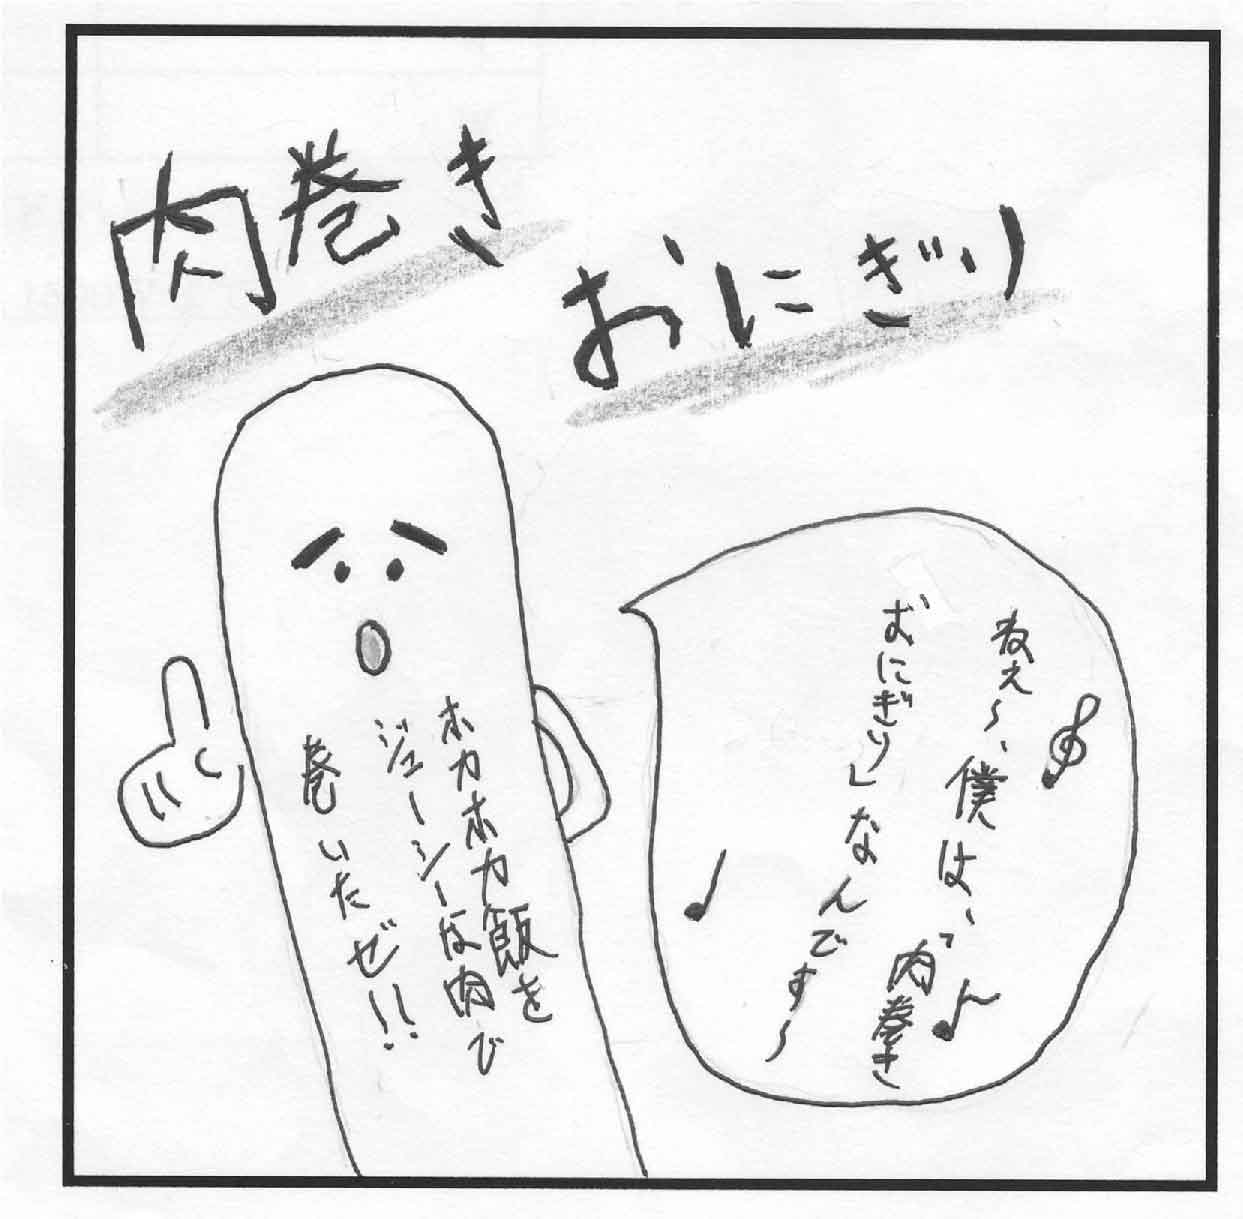 肉巻き
おにぎり
ねぇ〜、僕は、「肉巻き
おにぎり」なんです〜
ホカホカ飯を
ジューシーな肉で
巻いたぜ!!